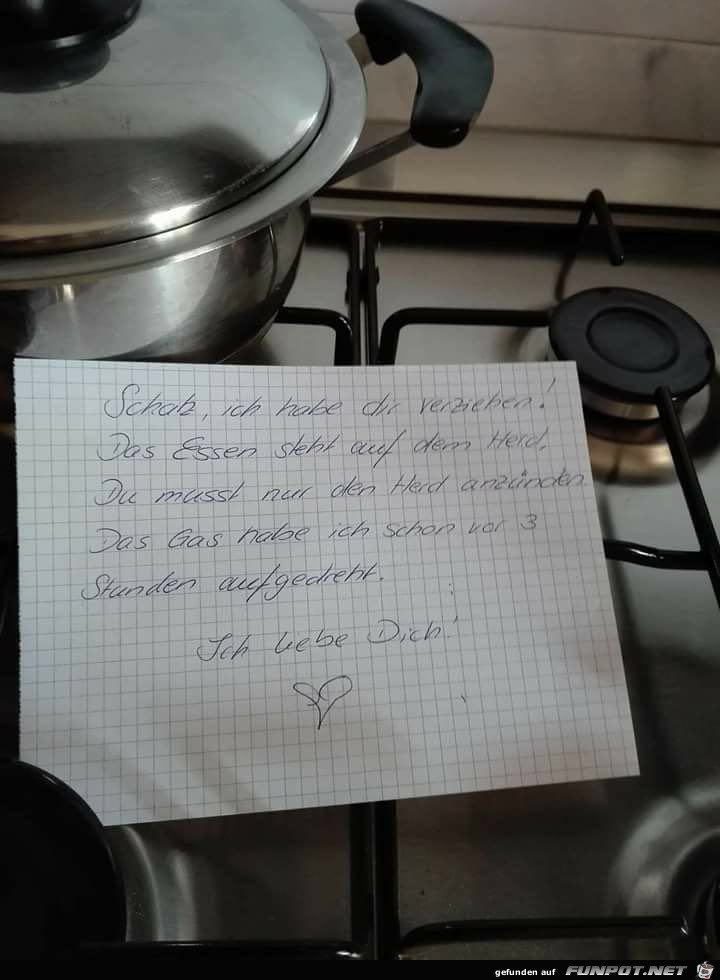 Schatz, ich habe dir verziehen!
Das Essen steht auf dem Herd.
Du musst nur den Herd anzünden.
Das Gas habe ich schon vor 3
Stunden aufgedreht.
Ich liebe Dich!
gefunden auf FUNPOT.NET